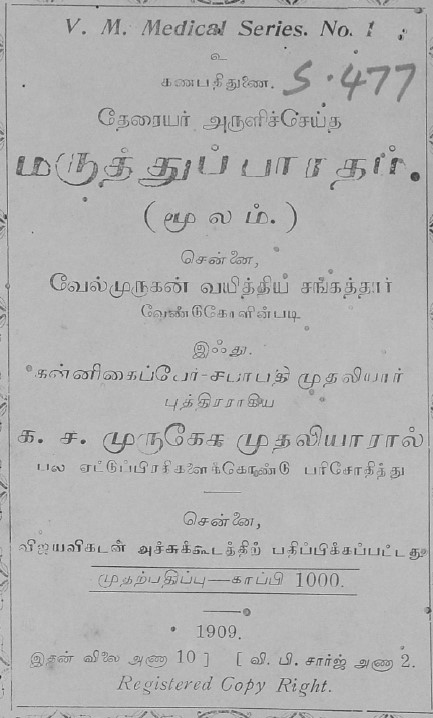 V. M. Medical Series. No. 1
உ
கணபதிதுணை.
S. 477
தேரையர் அருளிச்செய்த
மருத்துப்பாரதம்.
(மூலம்.)
சென்னை,
வேல்முருகன் வயித்திய சங்கத்தார்
வேண்டுகோளின்படி
இஃது.
கன்னிகைப்பேர்-சபாபதி முதலியார்
புத்திரராகிய
க. ச. முருகேச முதலியாரால்
பல ஏட்டுப்பிரதிகளைக்கொண்டு பரிசோதித்து
சென்னை,
விஜயவிகடன் அச்சுக்கூடத்திற் பதிப்பிக்கப்பட்டது
முதற்பதிப்பு—காப்பி 1000.
1909.
இதன் விலை அணு 10 ] [ வி. பி. சார்ஜ் அணு 2.
Registered Copy Right.